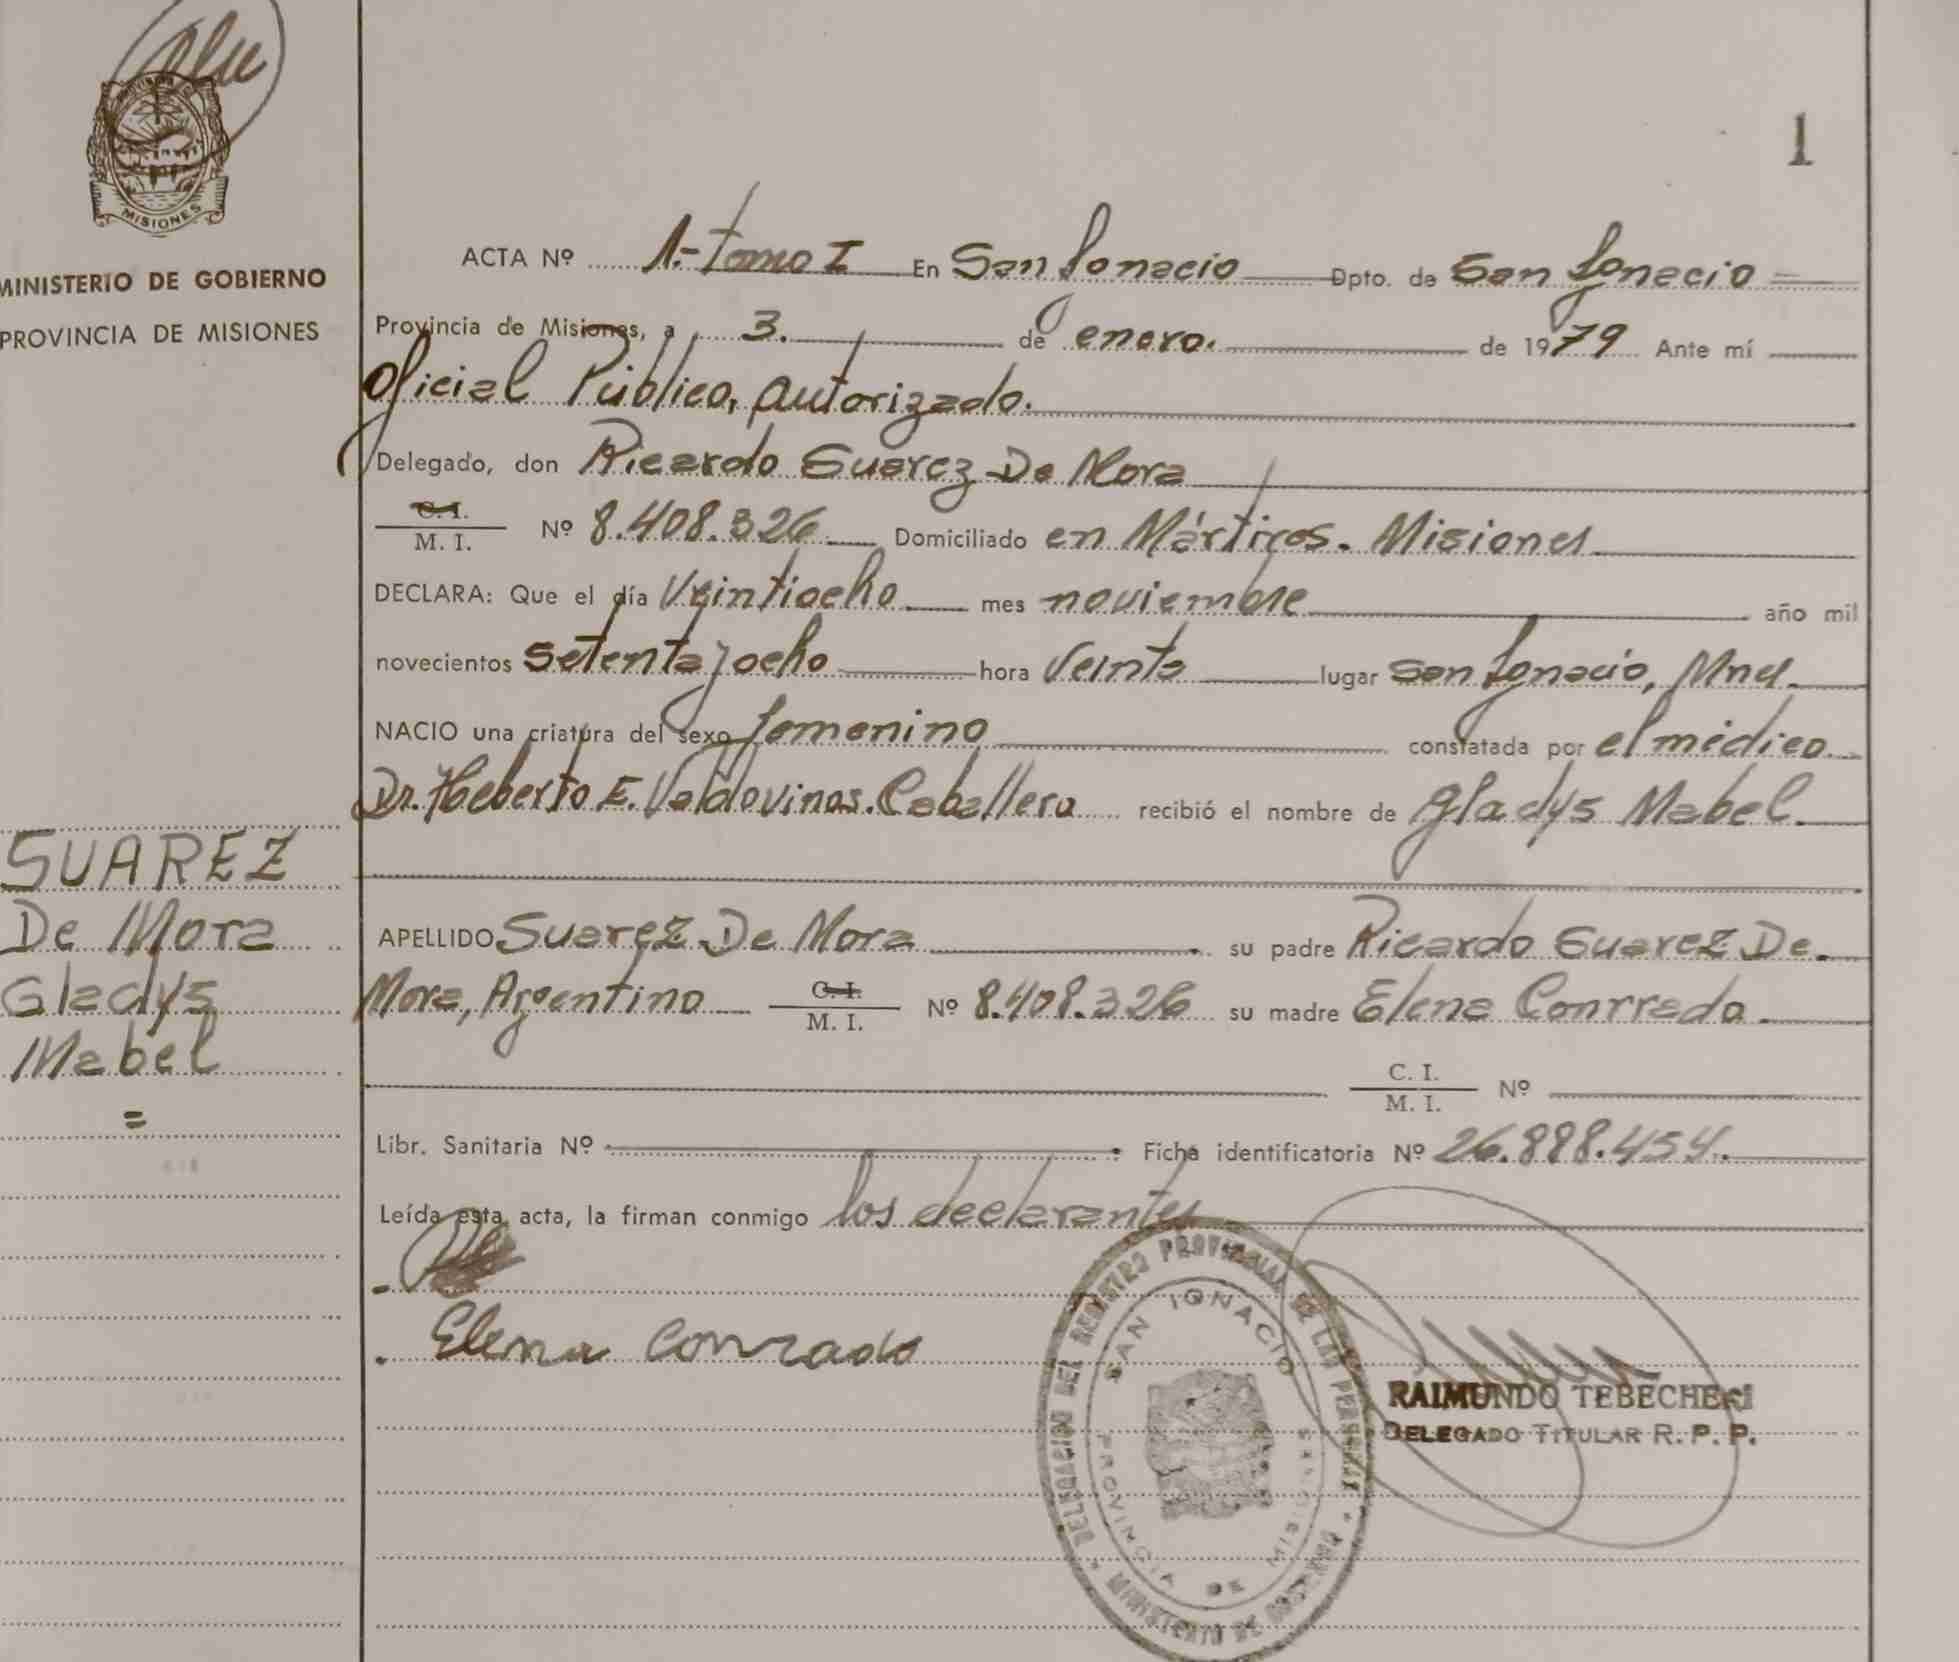 1
MISIONES
MINISTERIO DE GOBIERNO
PROVINCIA DE MISIONES
ACTA Nº 1.- tomo I En San Ignacio Dpto. de San Ignacio
Provincia de Misiones, a 3. de enero. de 1979 Ante mí
Oficial Público, autorizado.
Delegado, don Ricardo Suarez De Mora
C. I.
M. I. Nº 8.408.326 Domiciliado en Mártires. Misiones
DECLARA: Que el día Veintiocho mes noviembre año mil
novecientos setenta y ocho hora Veinte lugar San Ignacio, Mnes.
NACIO una criatura del sexo femenino constatada por el médico
Dr. Heberto E. Valdovinos. Caballero recibió el nombre de Gladys Mabel.
APELLIDO Suarez De Mora su padre Ricardo Suarez De
Mora, Argentino C. I.
M. I. Nº 8.408.326 su madre Elena Conrrado.
C. I.
M. I. Nº
Libr. Sanitaria Nº Ficha identificatoria Nº 26.898.454.
Leída esta acta, la firman conmigo los declarantes
Elena Conrado
SUAREZ
De Mora
Gladys
Mabel
=
DELEGACION DEL REGISTRO PROVINCIAL DE LAS PERSONAS
SAN IGNACIO
PROVINCIA DE MISIONES
RAIMUNDO TEBECHERI
DELEGADO TITULAR R. P. P.